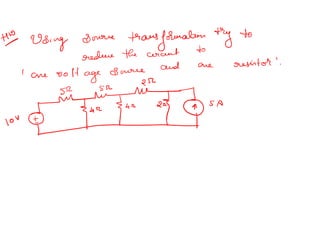 HW Using source transformation try to
reduce the circuit to
'one voltage source and one resistor'.
5Ω 5Ω 2Ω
4Ω 4Ω 2Ω 5A
10V + ↑